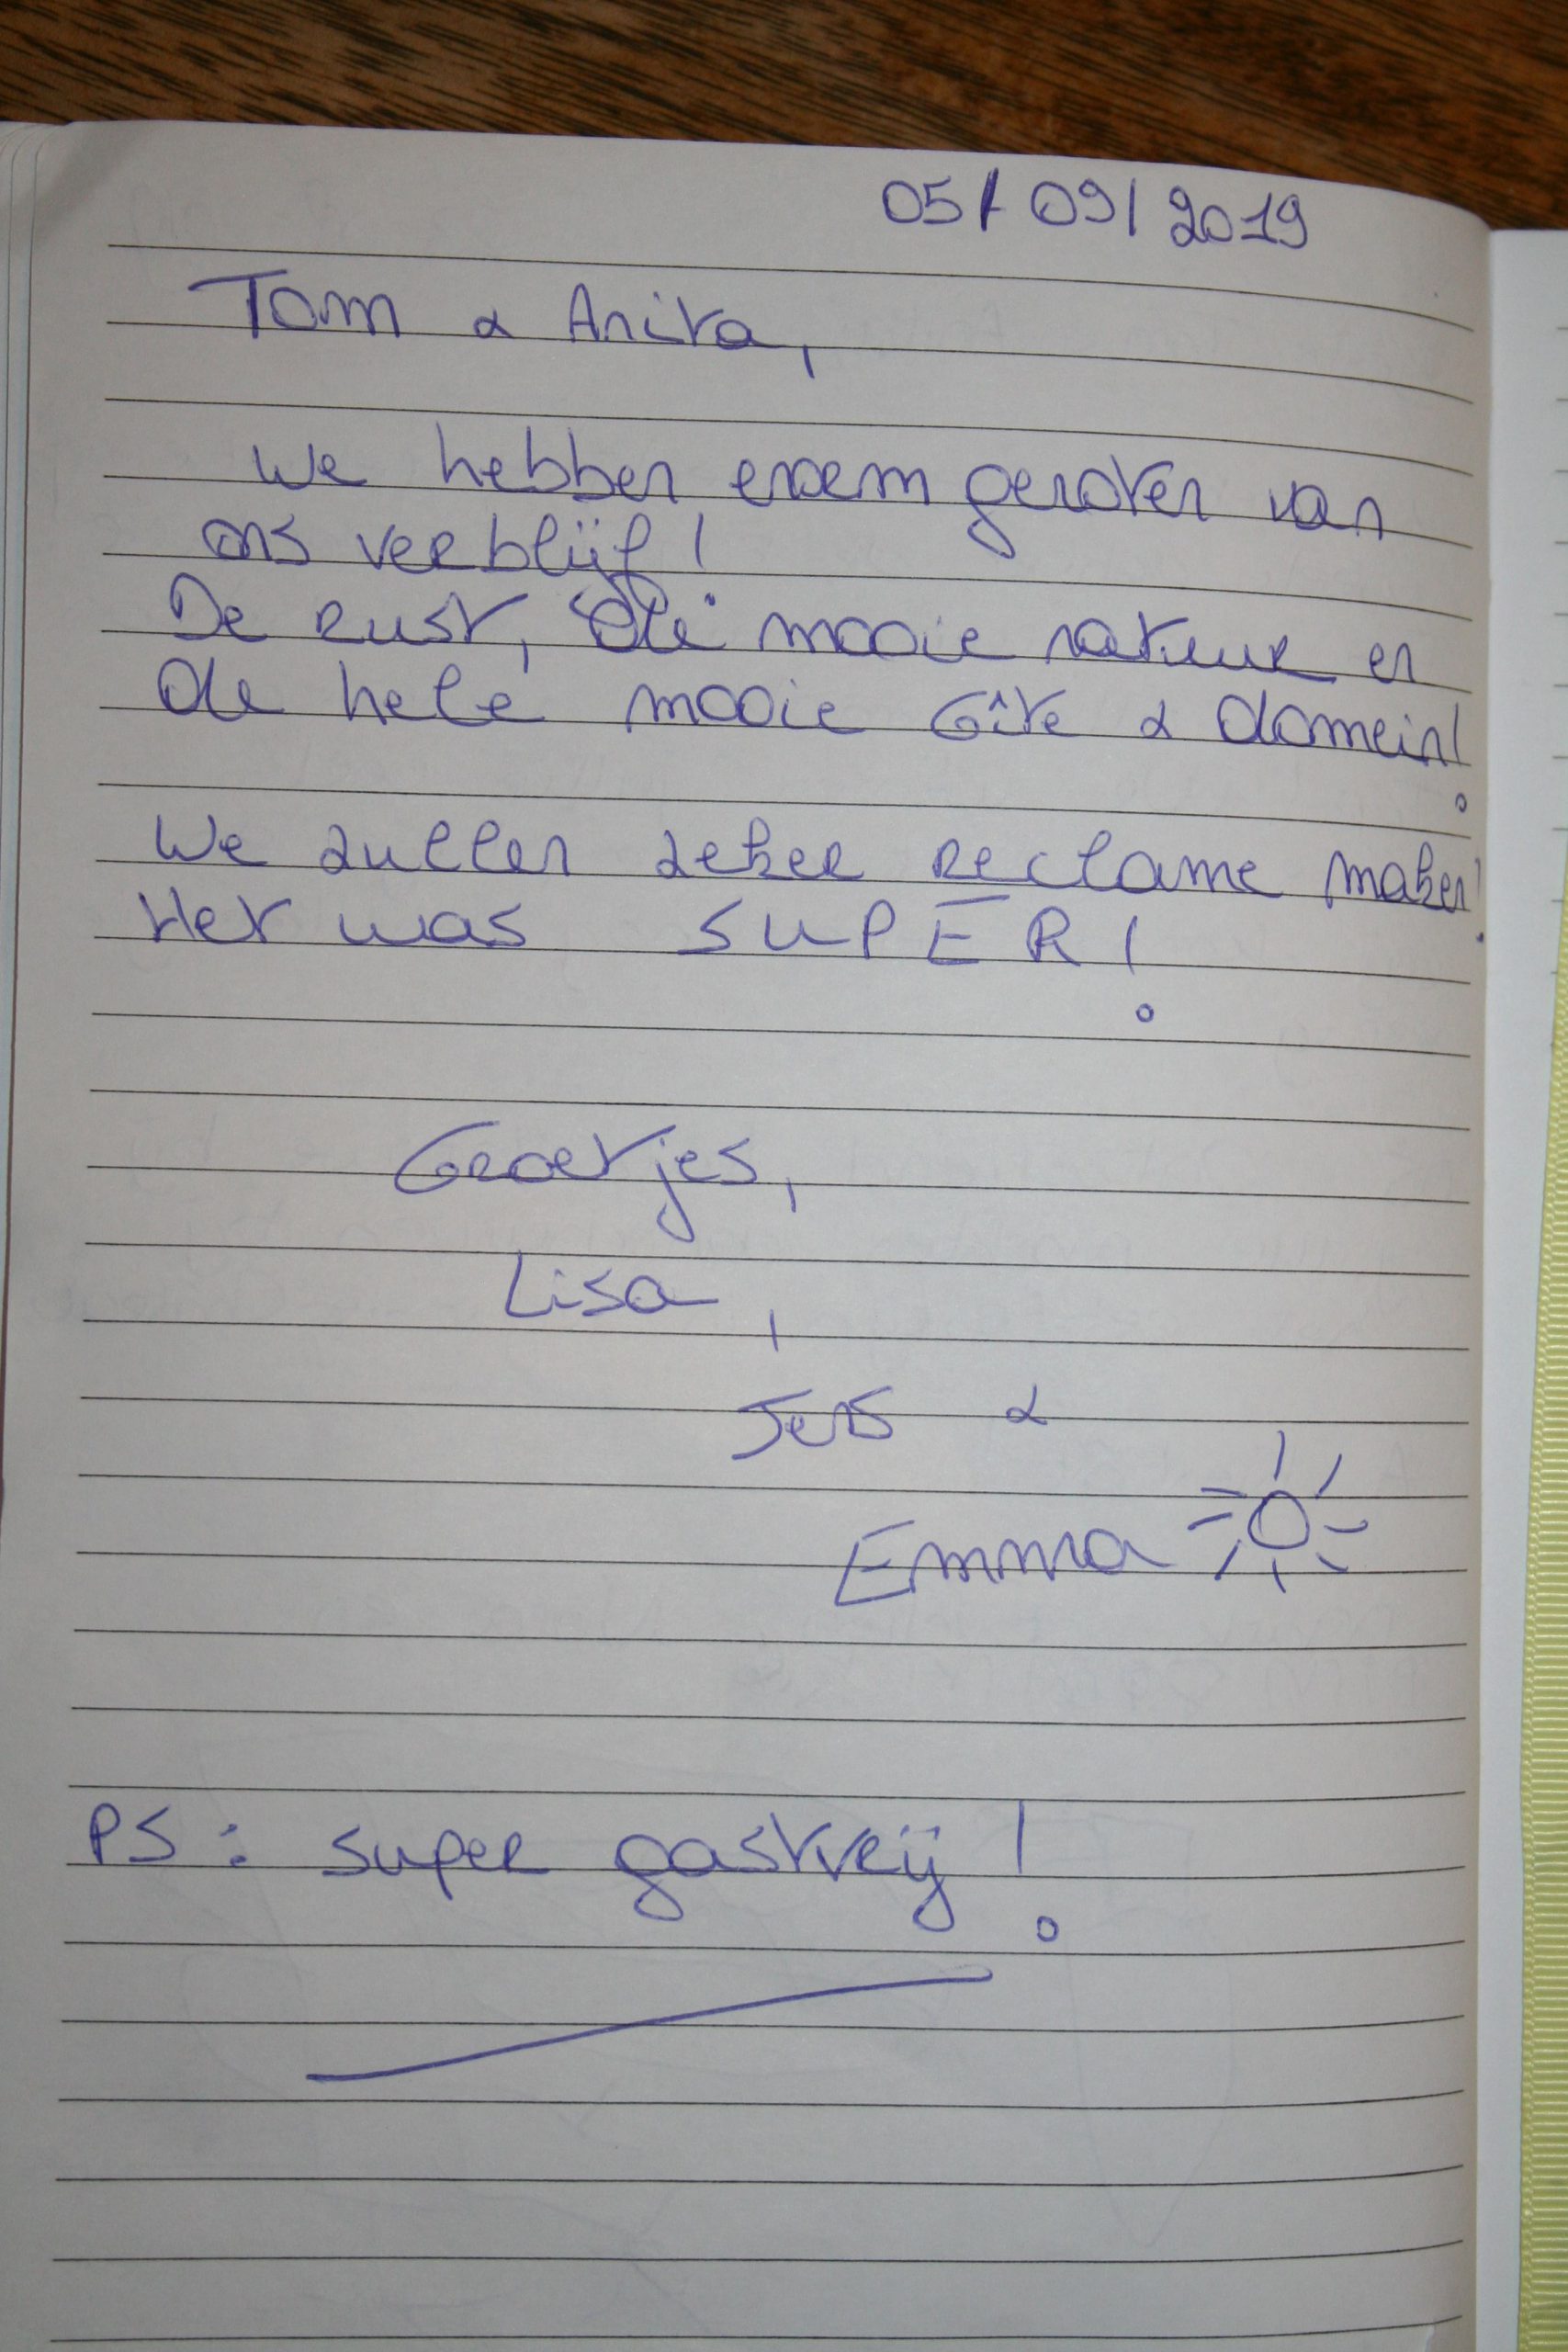 05/09/2019
Tom & Anita,
We hebben enorm genoten van
ons verblijf!
De rust, de mooie natuur en
de hele mooie Gîte & domein!
We zullen zeker reclame maken!
Het was SUPER!
Groetjes,
Lisa,
Jens &
Emma
PS: super gastvrij!